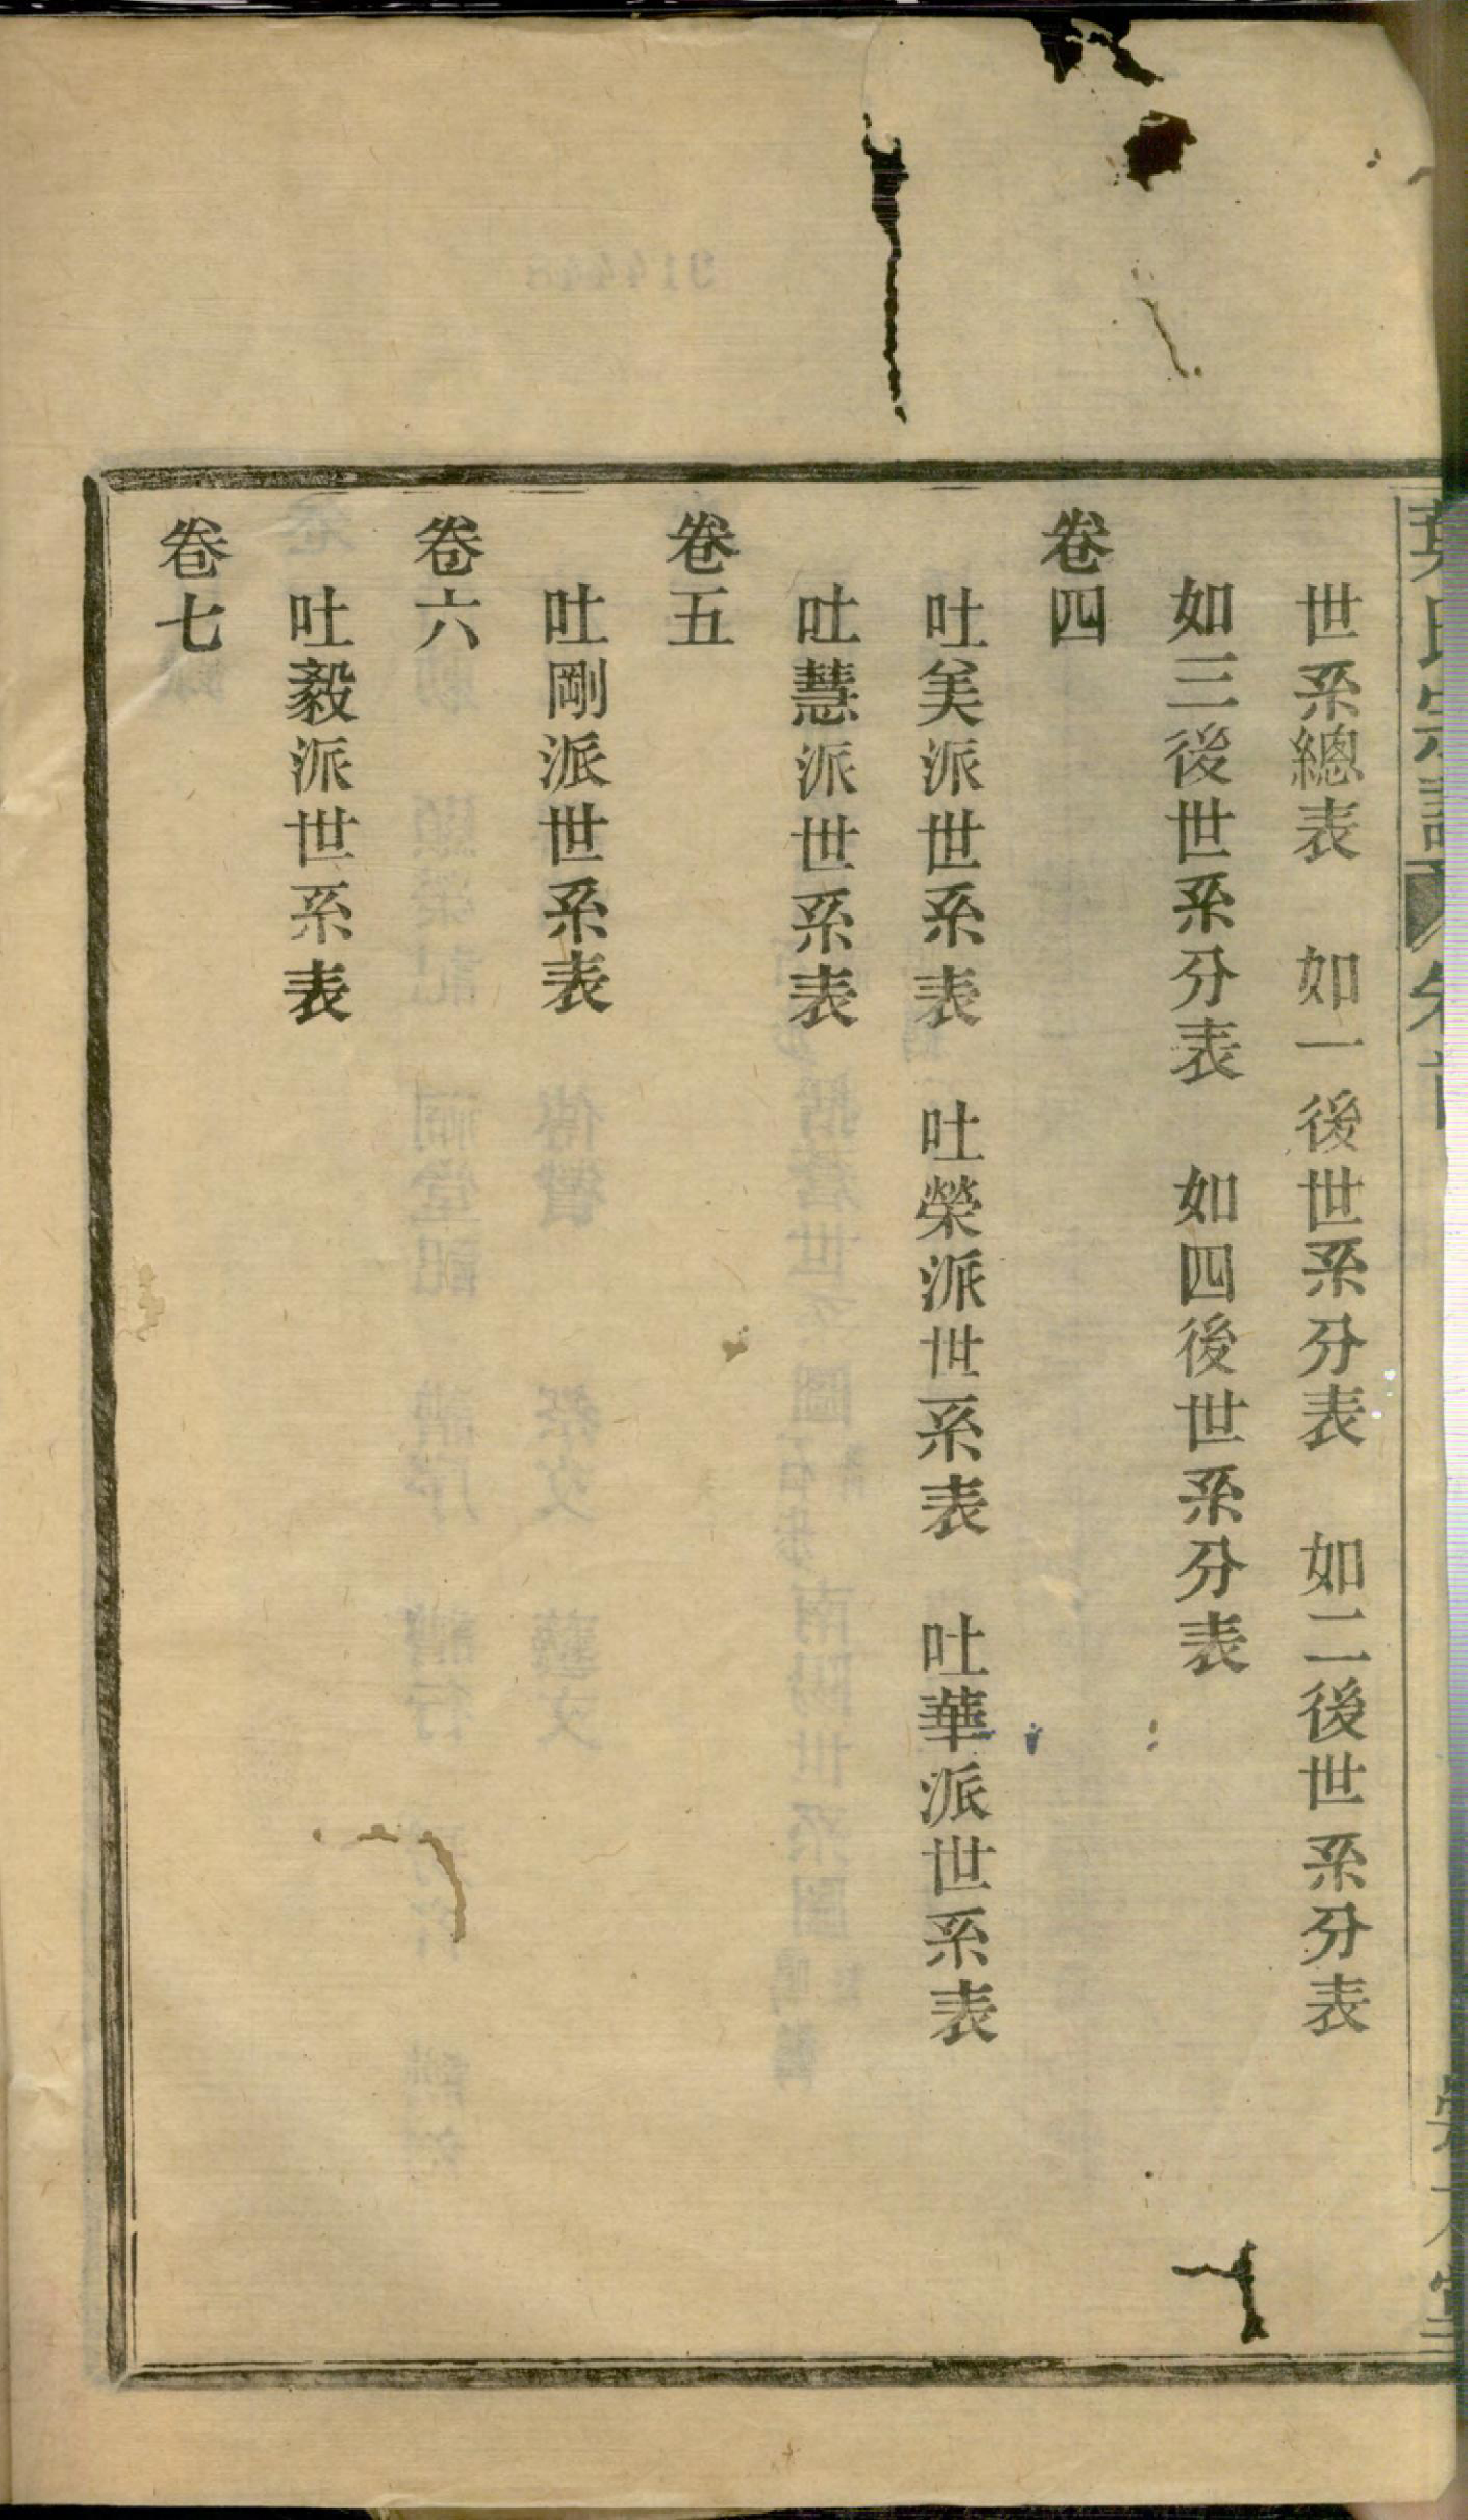 世系總表　如一後世系分表　如二後世系分表
如三後世系分表　如四後世系分表
卷四
吐美派世系表　吐榮派世系表　吐華派世系表
吐慧派世系表
卷五
吐剛派世系表
卷六
吐毅派世系表
卷七